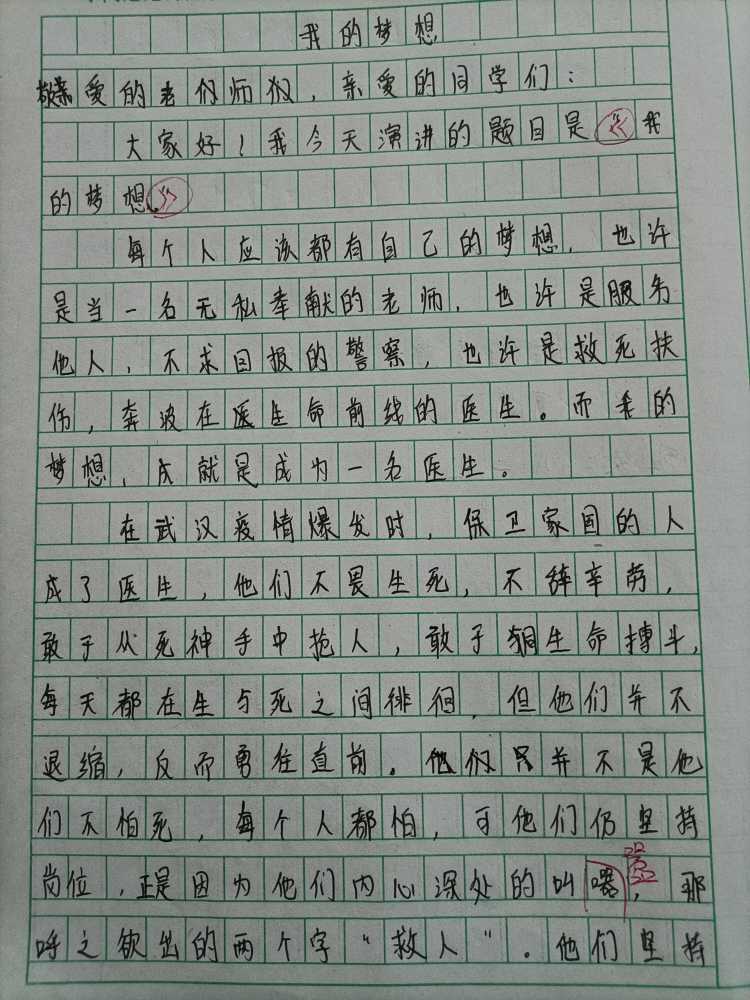 我的梦想
敬亲爱的老们师们，亲爱的同学们：
大家好！我今天演讲的题目是《我
的梦想》
每个人应该都有自己的梦想，也许
是当一名无私奉献的老师，也许是服务
他人，不求回报的警察，也许是救死扶
伤，奔波在医生命前线的医生。而我的
梦想，成就是成为一名医生。
在武汉疫情爆发时，保卫家国的人
成了医生，他们不畏生死，不辞辛劳，
敢于从死神手中抢人，敢于生命搏斗，
每天都在生与死之间徘徊，但他们并不
退缩，反而勇往直前。他们并不是他
们不怕死，每个人都怕，可他们仍坚持
岗位，正是因为他们内心深处的叫嚣，那
呼之欲出的两个字“救人”。他们坚持